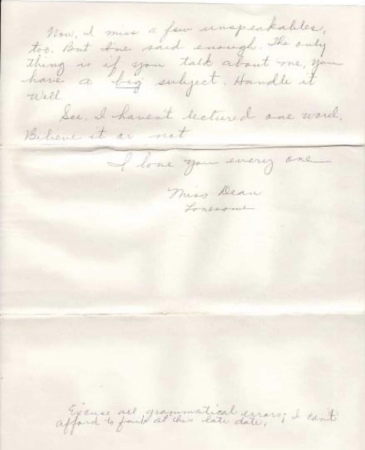 Now, I miss a few unspeakables,
too. But I've said enough. The only
thing is if you talk about me, you
have a big subject. Handle it
well.
See, I haven't lectured one word,
Believe it or not
I love you every one
Miss Dean
Lonesome
Excuse all grammatical errors; I can't
afford to fail at this late date.